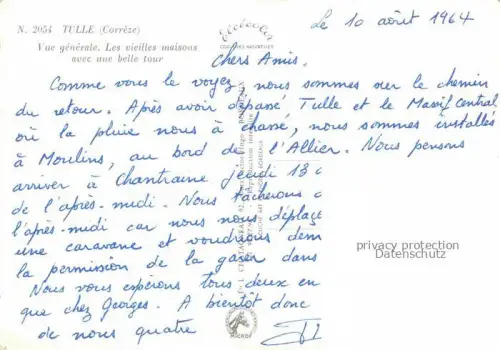 N. 2054 TULLE (Corrèze)
Vue générale. Les vieilles maisons
avec une belle tour
Elcécolor
Le 10 août 1964
Chers Amis.
Comme vous le voyez, nous sommes sur le chemin
du retour. Après avoir dépassé Tulle et le Massif Central
où la pluie nous à chassé, nous sommes installés
à Moulins, au bord de l'Allier. Nous pensons
arriver à Chantraine jeudi 13 c
de l'après-midi. Nous tacherons d
l'après-midi car nous nous déplaç
une caravane et voudrions dem
la permission de la garer dans
Nous vous espérons tous deux en
que chez Georges. A bientôt donc
de nous quatre
privacy protection
Datenschutz